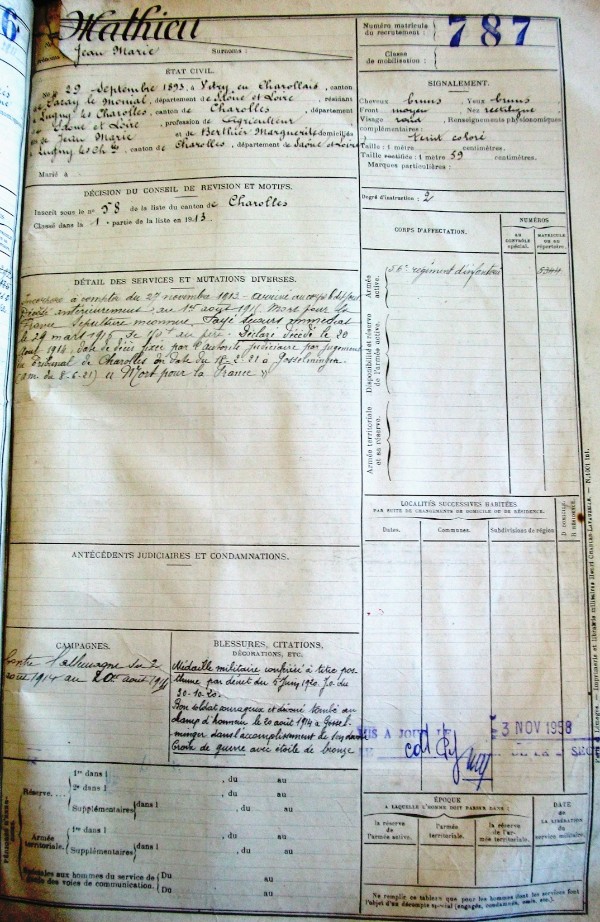 Mathieu
Jean Marie
Surnoms :
Numéro matricule
du recrutement :
787
Classe
de mobilisation :
ÉTAT CIVIL.
29 Septembre 1893, à Vitry en Charollais, canton
de Paray le Monial, département de Saône et Loire, résidant
Lugny les Charolles, canton de Charolles, département
Saône et Loire, profession de Cultivateur
de Jean Marie et de Berthier Marguerite domiciliés
Lugny les Ch, canton de Charolles, département de Saône et Loire
Marié à
SIGNALEMENT.
Cheveux bruns Yeux bruns
Front moyen Nez rectiligne
Visage rond, Renseignements physionomiques
complémentaires :
teint coloré
Taille : 1 mètre centimètres.
Taille rectifiée : 1 mètre 59 centimètres.
Marques particulières :
Degré d'instruction : 2
DÉCISION DU CONSEIL DE REVISION ET MOTIFS.
Inscrit sous le n° 58 de la liste du canton de Charolles
Classé dans la 1e partie de la liste en 1913.
CORPS D'AFFECTATION.
NUMÉROS
AU CONTRÔLE spécial.
MATRICULE OU AU répertoire.
Armée active.
56e régiment d'infanterie
Disponibilité et réserve de l'armée active.
Armée territoriale et sa réserve.
DÉTAIL DES SERVICES ET MUTATIONS DIVERSES.
Incorporé à compter du 27 novembre 1913 - arrivé au corps le dit jour
Décédé antérieurement au 1er août 1915 Mort pour la
France Sépulture inconnue. Payé secours immédiat
le 29 mars 1915 de 150 au père. Déclaré décédé le 20
août 1914, date de décès fixée par l'autorité judiciaire par jugement
du tribunal de Charolles en date du 18-2-21 à Gosselmingen
(Avis du 8-6-21) « Mort pour la France »
LOCALITÉS SUCCESSIVES HABITÉES
PAR SUITE DE CHANGEMENTS DE DOMICILE OU DE RÉSIDENCE.
Dates.
Communes.
Subdivisions de région.
D DOMICILE.
R RÉSIDENCE.
ANTÉCÉDENTS JUDICIAIRES ET CONDAMNATIONS.
CAMPAGNES.
Contre l'allemagne du 2
août 1914 au 20 août 1914
BLESSURES, CITATIONS,
DÉCORATIONS, ETC.
Médaille militaire conférée à titre pos-
thume par décret du 5 Juin 1920. J.O. du
30-10-20.
Bon soldat courageux et dévoué tombé au
champ d'honneur le 20 août 1914 à Gossel-
minger dans l'accomplissement de son devoir
Croix de guerre avec étoile de bronze
MIS A JOUR LE
3 NOV 1958
Réserve. . . .
1re dans l , du au
2e dans l , du au
Supplémentaires dans l , du au
Armée territoriale.
1re dans l , du au
Supplémentaires dans l , du au
Spéciales aux hommes du service de
garde des voies de communication.
Du au
Du au
ÉPOQUE
A LAQUELLE L'HOMME DOIT PASSER DANS :
la réserve de l'armée active.
l'armée territoriale.
la réserve de l'armée territoriale.
DATE
DE LA LIBÉRATION
du service militaire.
Ne remplir ce tableau que pour les hommes dont les services font
l'objet d'un décompte spécial (engagés, condamnés, omis, etc.).